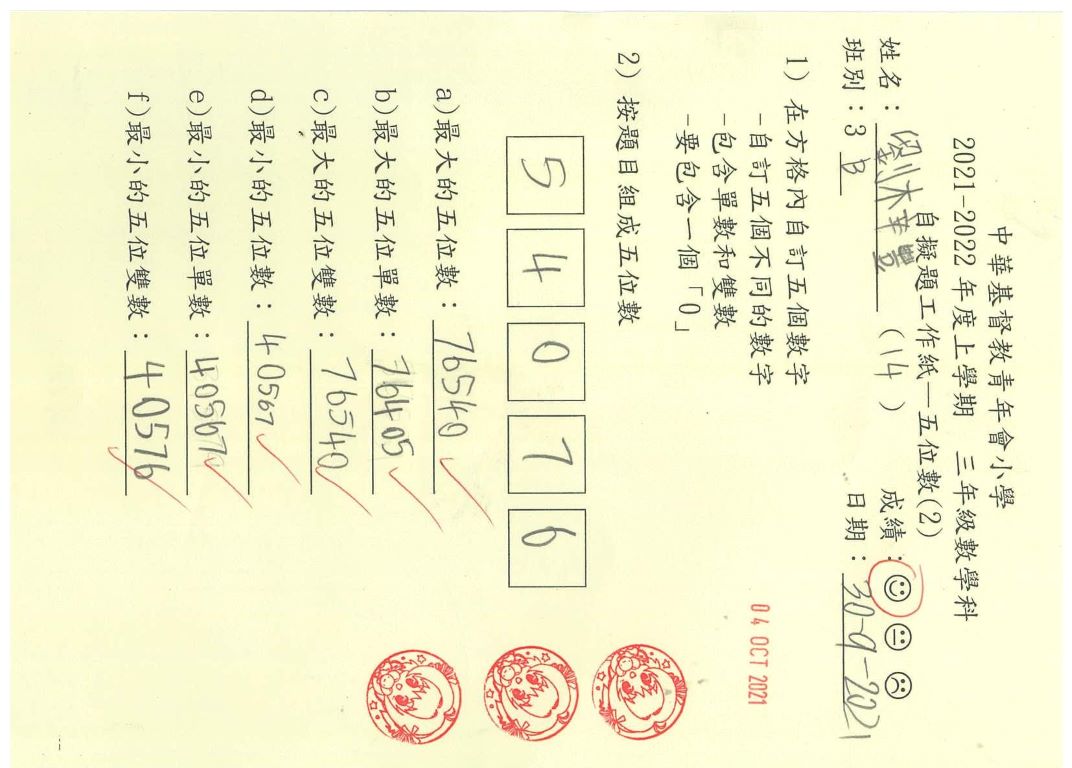 中華基督教青年會小學
2021-2022 年度上學期　三年級數學科
自擬題工作紙—五位數(2)
姓名： (14) 成績：
班別：3 B 日期：30-9-2021
1) 在方格內自訂五個數字
-自訂五個不同的數字
-包含單數和雙數
-要包含一個「0」
04 OCT 2021
2) 按題目組成五位數
5 4 0 7 6
a)最大的五位數：76540
b)最大的五位單數：76405
c)最大的五位雙數：76540
d)最小的五位數：40567
e)最小的五位單數：40567
f)最小的五位雙數：40576